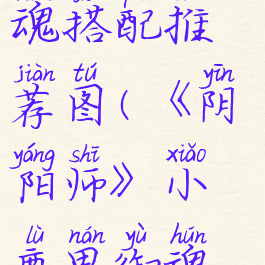 魂搭配推
jiàn tú yīn
荐图(《阴
yáng shī xiǎo
阳师》小
lù nán yù hún
鹿男御魂